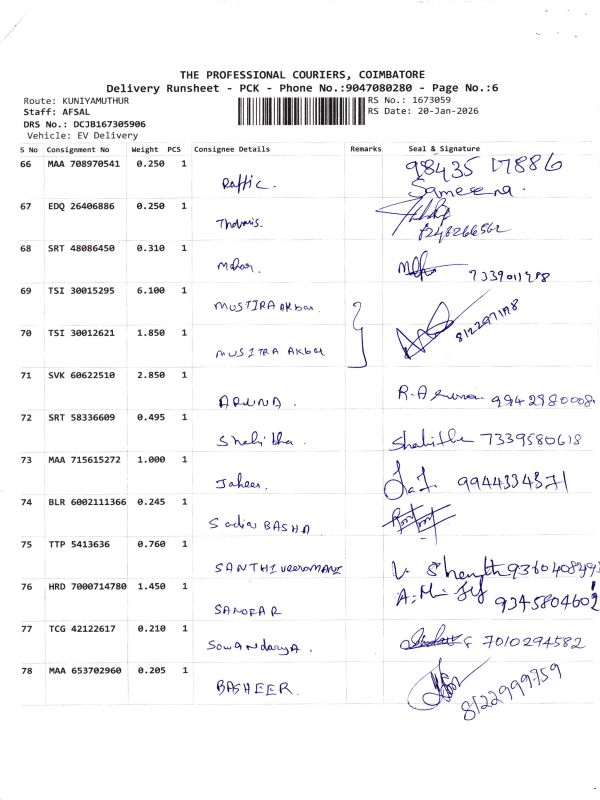 THE PROFESSIONAL COURIERS, COIMBATORE
Delivery Runsheet - PCK - Phone No.:9047080280 - Page No.:6
Route: KUNIYAMUTHUR
RS No.: 1673059
Staff: AFSAL
RS Date: 20-Jan-2026
DRS No.: DCJB167305906
Vehicle: EV Delivery
S No Consignment No Weight PCS Consignee Details Remarks Seal & Signature
66 MAA 708970541 0.250 1 98435 17886
Raffic. Sameena.
67 EDQ 26406886 0.250 1
Thomis.
68 SRT 48086450 0.310 1
Mahar.
69 TSI 30015295 6.100 1
MUSTIRA AKbar
70 TSI 30012621 1.850 1
MUSITRA AKbar
71 SVK 60622510 2.850 1
ARUNA. R. Aruna 9942980008
72 SRT 58336609 0.495 1
Shabitha. Shabitha 7339580618
73 MAA 715615272 1.000 1
Jaheer. 9944334371
74 BLR 6002111366 0.245 1
Sadiq BASHA
75 TTP 5413636 0.760 1
SANTHI Veeramani
76 HRD 7000714780 1.450 1
SANOFAR 9345804602
77 TCG 42122617 0.210 1
Sowandarya. 7010294582
78 MAA 653702960 0.205 1
BASHEER. 8122999759